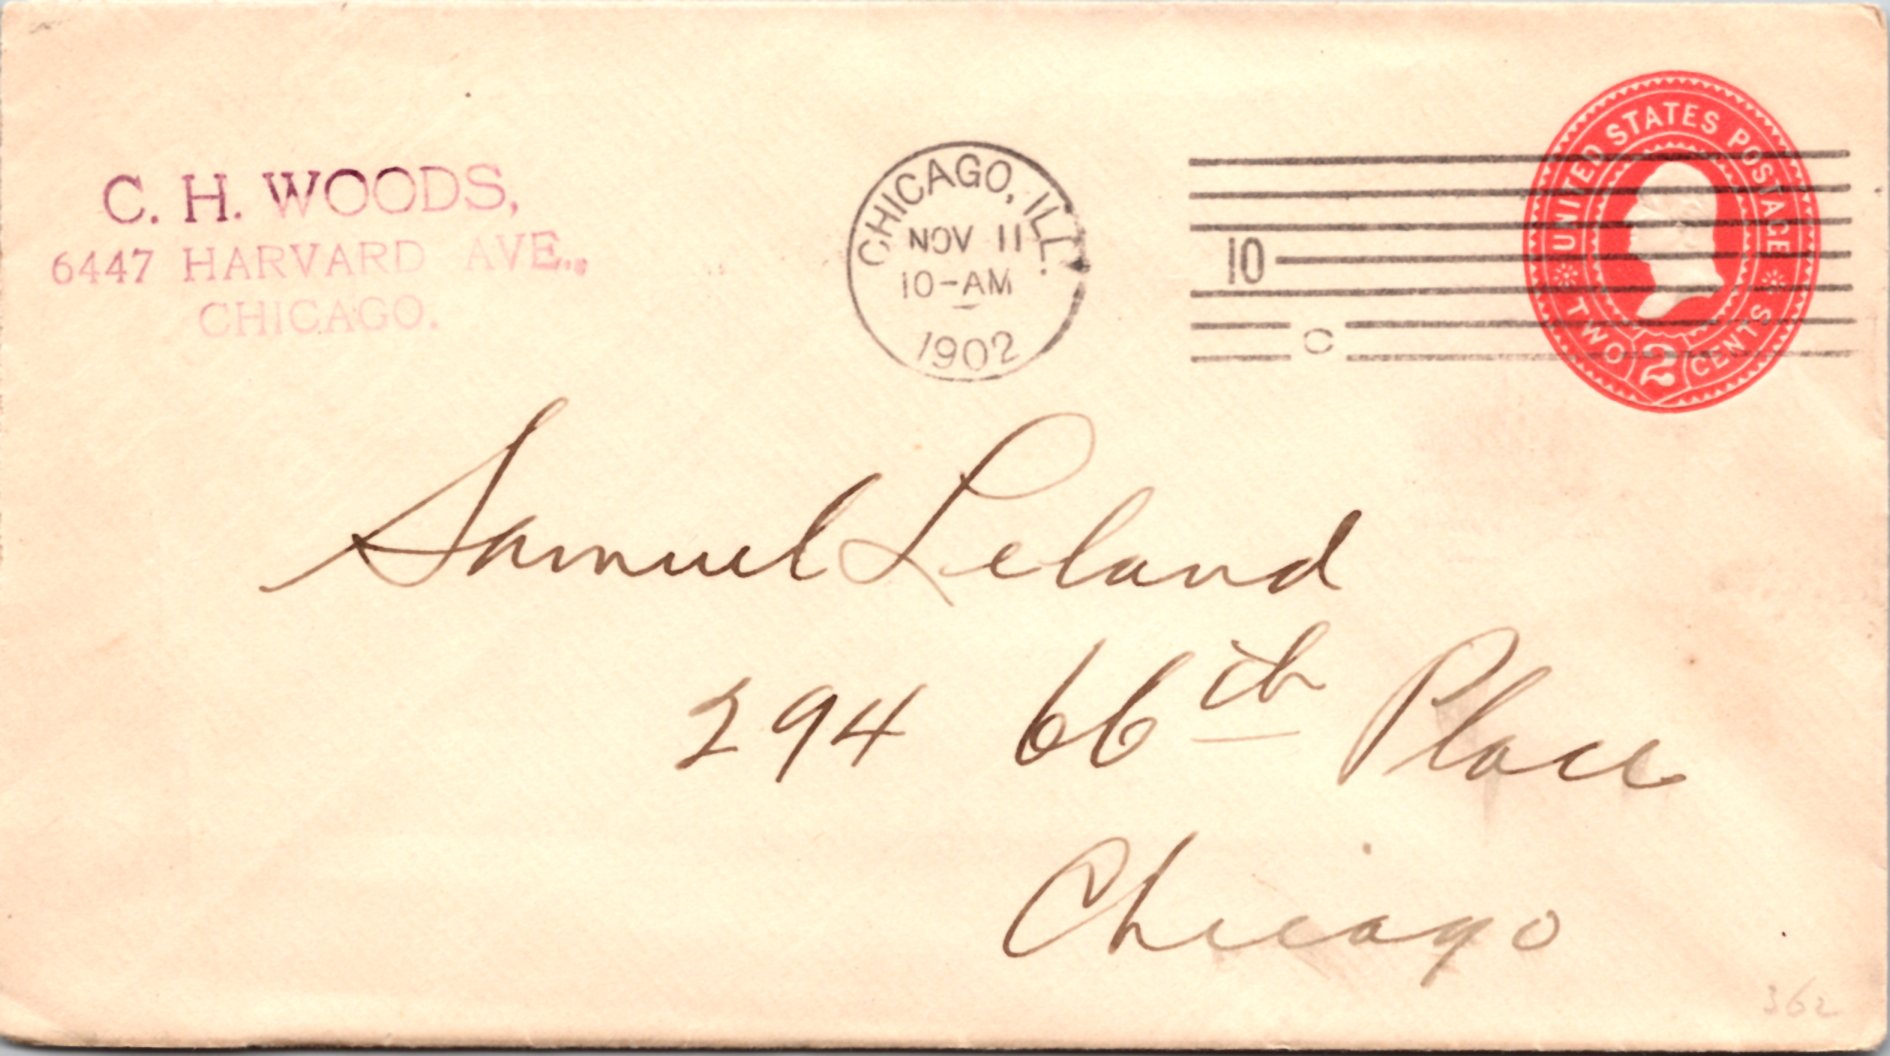 C. H. WOODS,
6447 HARVARD AVE.,
CHICAGO.
CHICAGO, ILL.
NOV 11
10-AM
1902
10
C
UNITED STATES POSTAGE
TWO 2 CENTS
Samuel Leland
294 66th Place
Chicago
362